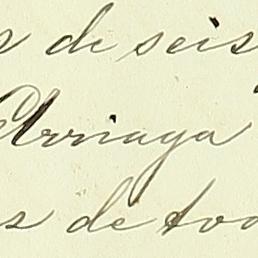 s de seis
Arriaga
s de tod